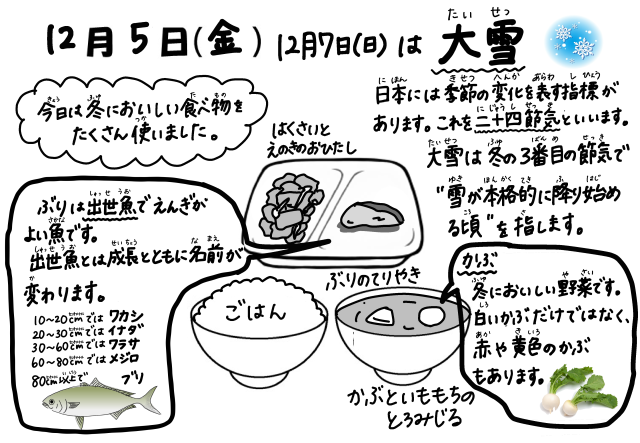 12月5日(金) 12月7日(日)は 大雪
たいせつ
今日は冬においしい食べ物を
たくさん使いました。
はくさいと
えのきのおひたし
日本には季節の変化を表す指標が
あります。これを二十四節気といいます。
大雪は冬の3番目の節気で
"雪が本格的に降り始め
る頃"を指します。
ぶりは出世魚でえんぎが
よい魚です。
出世魚とは成長とともに名前が
変わります。
10~20cmでは ワカシ
20~30cmでは イナダ
30~60cmでは ワラサ
60~80cmでは メジロ
80cm以上で ブリ
ぶりのてりやき
ごはん
かぶといももちの
とろみじる
かぶ
冬においしい野菜です。
白いかぶだけではなく、
赤や黄色のかぶ
もあります。